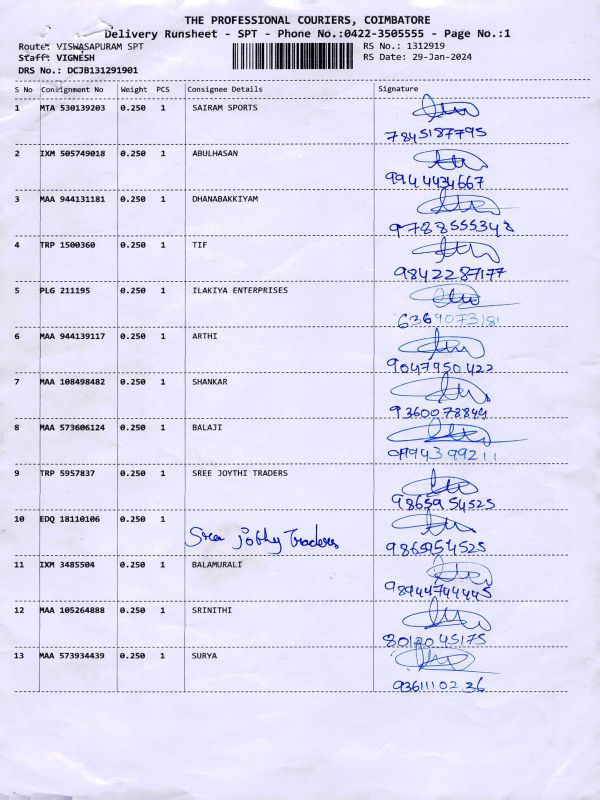 THE PROFESSIONAL COURIERS, COIMBATORE
Delivery Runsheet - SPT - Phone No.:0422-3505555 - Page No.:1
Route: VISWASAPURAM SPT RS No.: 1312919
Staff: VIGNESH RS Date: 29-Jan-2024
DRS No.: DCJB131291901
S No Consignment No Weight PCS Consignee Details Signature
1 MTA 530139203 0.250 1 SAIRAM SPORTS
7845187795
2 IXM 505749018 0.250 1 ABULHASAN
9944434667
3 MAA 944131181 0.250 1 DHANABAKKIYAM
9788555348
4 TRP 1500360 0.250 1 TIF
9842287177
5 PLG 211195 0.250 1 ILAKIYA ENTERPRISES
6369073181
6 MAA 944139117 0.250 1 ARTHI
9047950422
7 MAA 108498482 0.250 1 SHANKAR
9360078849
8 MAA 573606124 0.250 1 BALAJI
9 TRP 5957837 0.250 1 SREE JOYTHI TRADERS
9865954525
10 EDQ 18110106 0.250 1
Sree jothy Traders 9865954525
11 IXM 3485504 0.250 1 BALAMURALI
9894474445
12 MAA 105264888 0.250 1 SRINITHI
8012045175
13 MAA 573934439 0.250 1 SURYA
9361110236